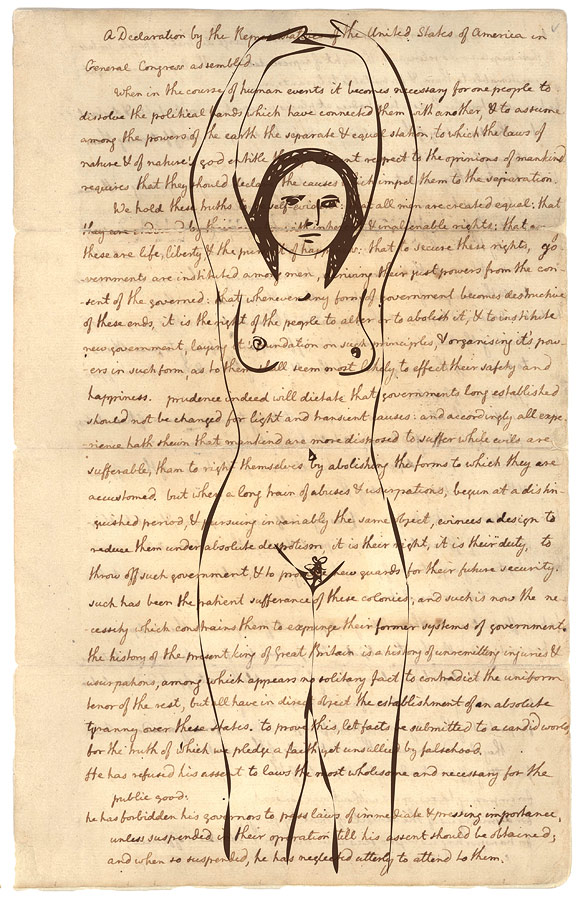 A Declaration by the of the United States of America in
General Congress assembled.
When in the course of human events it becomes necessary for one people to
dissolve the political bands which have connected them with another, & to assume
among the powers of the earth the separate & equal station, to which the laws of
nature & of nature's god entitle respect to the opinions of mankind
requires that they should declare the causes which impel them to the separation.
We hold these truths all men are created equal; that
inalienable rights; that
these are life, liberty, & the that to secure these rights, go-
vernments are instituted among men, deriving their just powers from the con-
sent of the governed; that whenever any form of government becomes destructive
of these ends, it is the right of the people to alter or to abolish it, & to institute
new government, laying it's foundation on such principles, & organising it's pow-
ers in such form, as to them shall seem most likely to effect their safety and
happiness. prudence indeed will dictate that governments long established
should not be changed for light and transient causes: and accordingly all expe-
rience hath shewn that mankind are more disposed to suffer while evils are
sufferable, than to right themselves by abolishing the forms to which they are
accustomed. but when a long train of abuses & usurpations, begun at a distin-
guished period, & pursuing invariably the same object, evinces a design to
reduce them under absolute despotism, it is their right, it is their duty, to
throw off such government, & to provide new guards for their future security.
such has been the patient sufferance of these colonies; and such is now the ne-
cessity which constrains them to expunge their former systems of government.
the history of the present king of Great Britain is a history of unremitting injuries &
usurpations, among which appears no solitary fact to contradict the uniform
tenor of the rest, but all have in direct object the establishment of an absolute
tyranny over these states. to prove this, let facts be submitted to a candid world,
for the truth of which we pledge a faith yet unsullied by falsehood.
He has refused his assent to laws the most wholesome and necessary for the
public good:
he has forbidden his governors to pass laws of immediate & pressing importance,
unless suspended in their operation till his assent should be obtained;
and when so suspended, he has neglected utterly to attend to them.